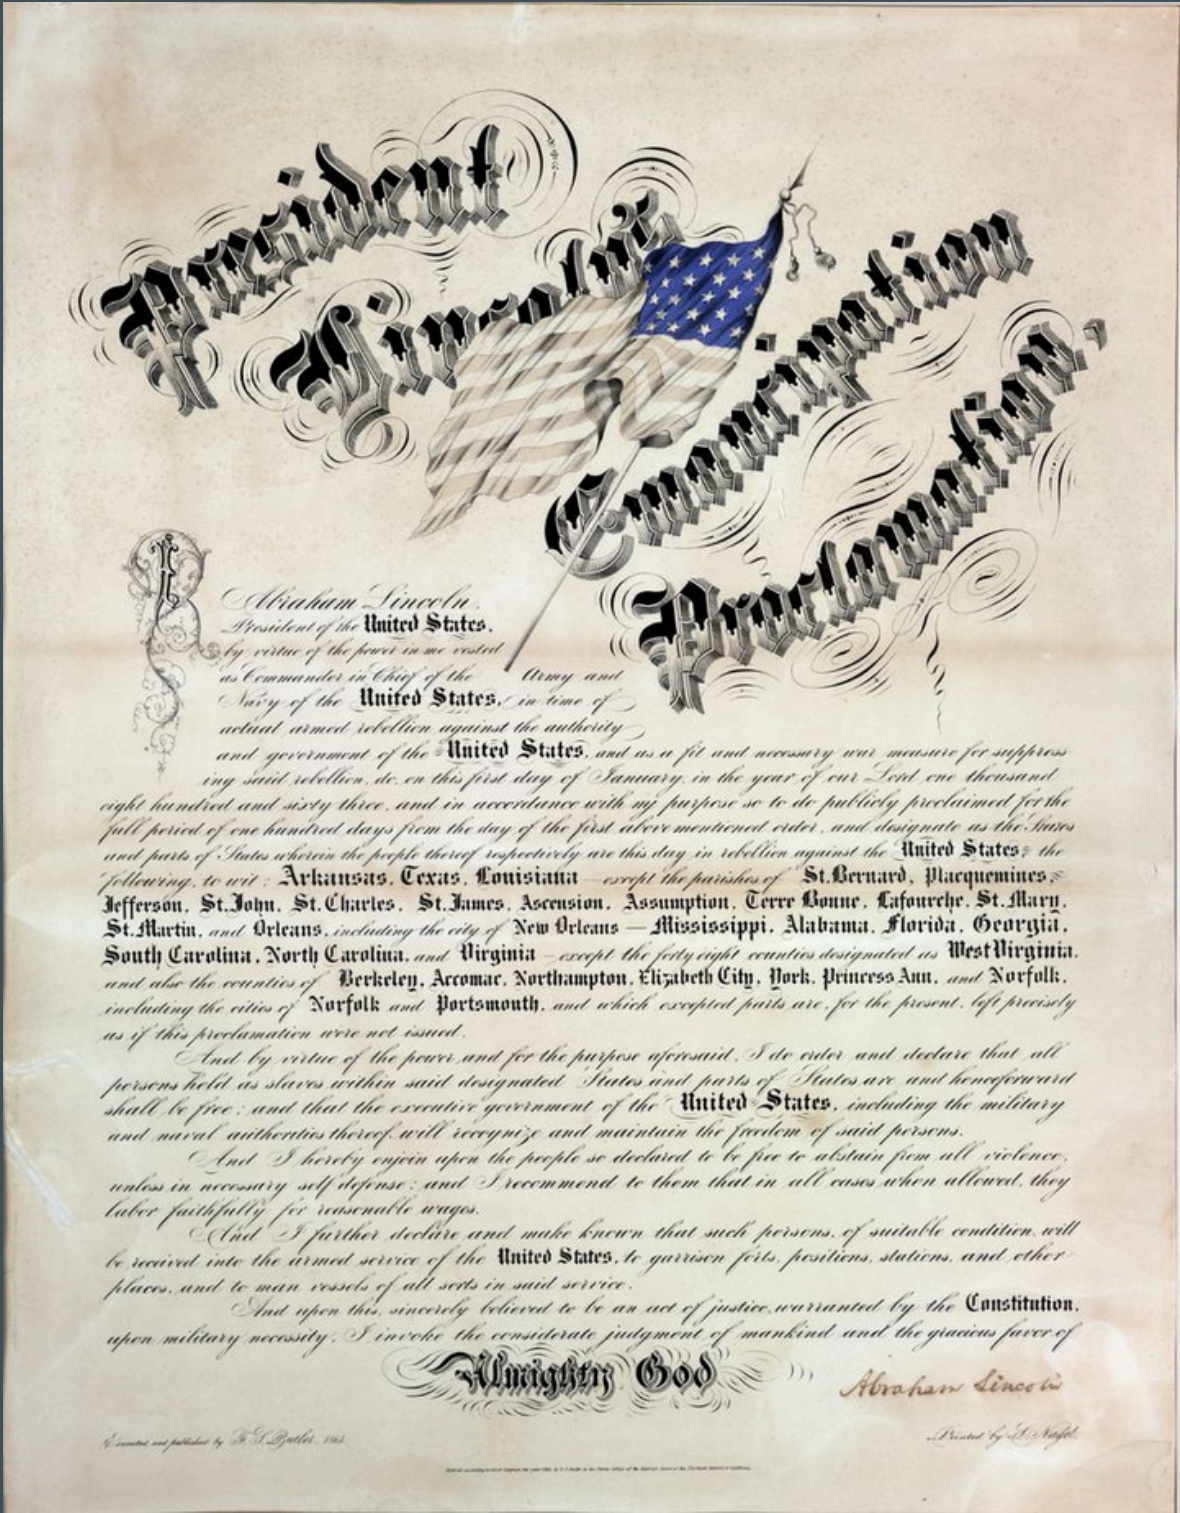 President
Lincoln's
Emancipation
Proclamation.
I
Abraham Lincoln,
President of the United States,
by virtue of the power in me vested
as Commander in Chief of the Army and
Navy of the United States, in time of
actual armed rebellion against the authority
and government of the United States, and as a fit and necessary war measure for suppress-
ing said rebellion, do, on this first day of January, in the year of our Lord one thousand
eight hundred and sixty three, and in accordance with my purpose so to do publicly proclaimed for the
full period of one hundred days from the day of the first above mentioned order, and designate as the States
and parts of States wherein the people thereof respectively are this day in rebellion against the United States; the
following, to wit: Arkansas, Texas, Louisiana — except the parishes of St. Bernard, Placquemines,
Jefferson, St. John, St. Charles, St. James, Ascension, Assumption, Terre Bonne, Lafourche, St. Mary,
St. Martin, and Orleans, including the city of New Orleans — Mississippi, Alabama, Florida, Georgia,
South Carolina, North Carolina, and Virginia — except the forty eight counties designated as West Virginia,
and also the counties of Berkeley, Accomac, Northampton, Elizabeth City, York, Princess Ann, and Norfolk,
including the cities of Norfolk and Portsmouth, and which excepted parts are, for the present, left precisely
as if this proclamation were not issued.
And by virtue of the power and for the purpose aforesaid, I do order and declare that all
persons held as slaves within said designated States and parts of States are and henceforward
shall be free; and that the executive government of the United States, including the military
and naval authorities thereof, will recognize and maintain the freedom of said persons.
And I hereby enjoin upon the people so declared to be free to abstain from all violence,
unless in necessary self defense; and I recommend to them that in all cases when allowed, they
labor faithfully for reasonable wages.
And I further declare and make known that such persons, of suitable condition, will
be received into the armed service of the United States, to garrison forts, positions, stations, and other
places, and to man vessels of all sorts in said service.
And upon this, sincerely believed to be an act of justice, warranted by the Constitution,
upon military necessity, I invoke the considerate judgment of mankind and the gracious favor of
Almighty God
Abraham Lincoln
and published by F. S. Butler.
Printed by L. Nagel.